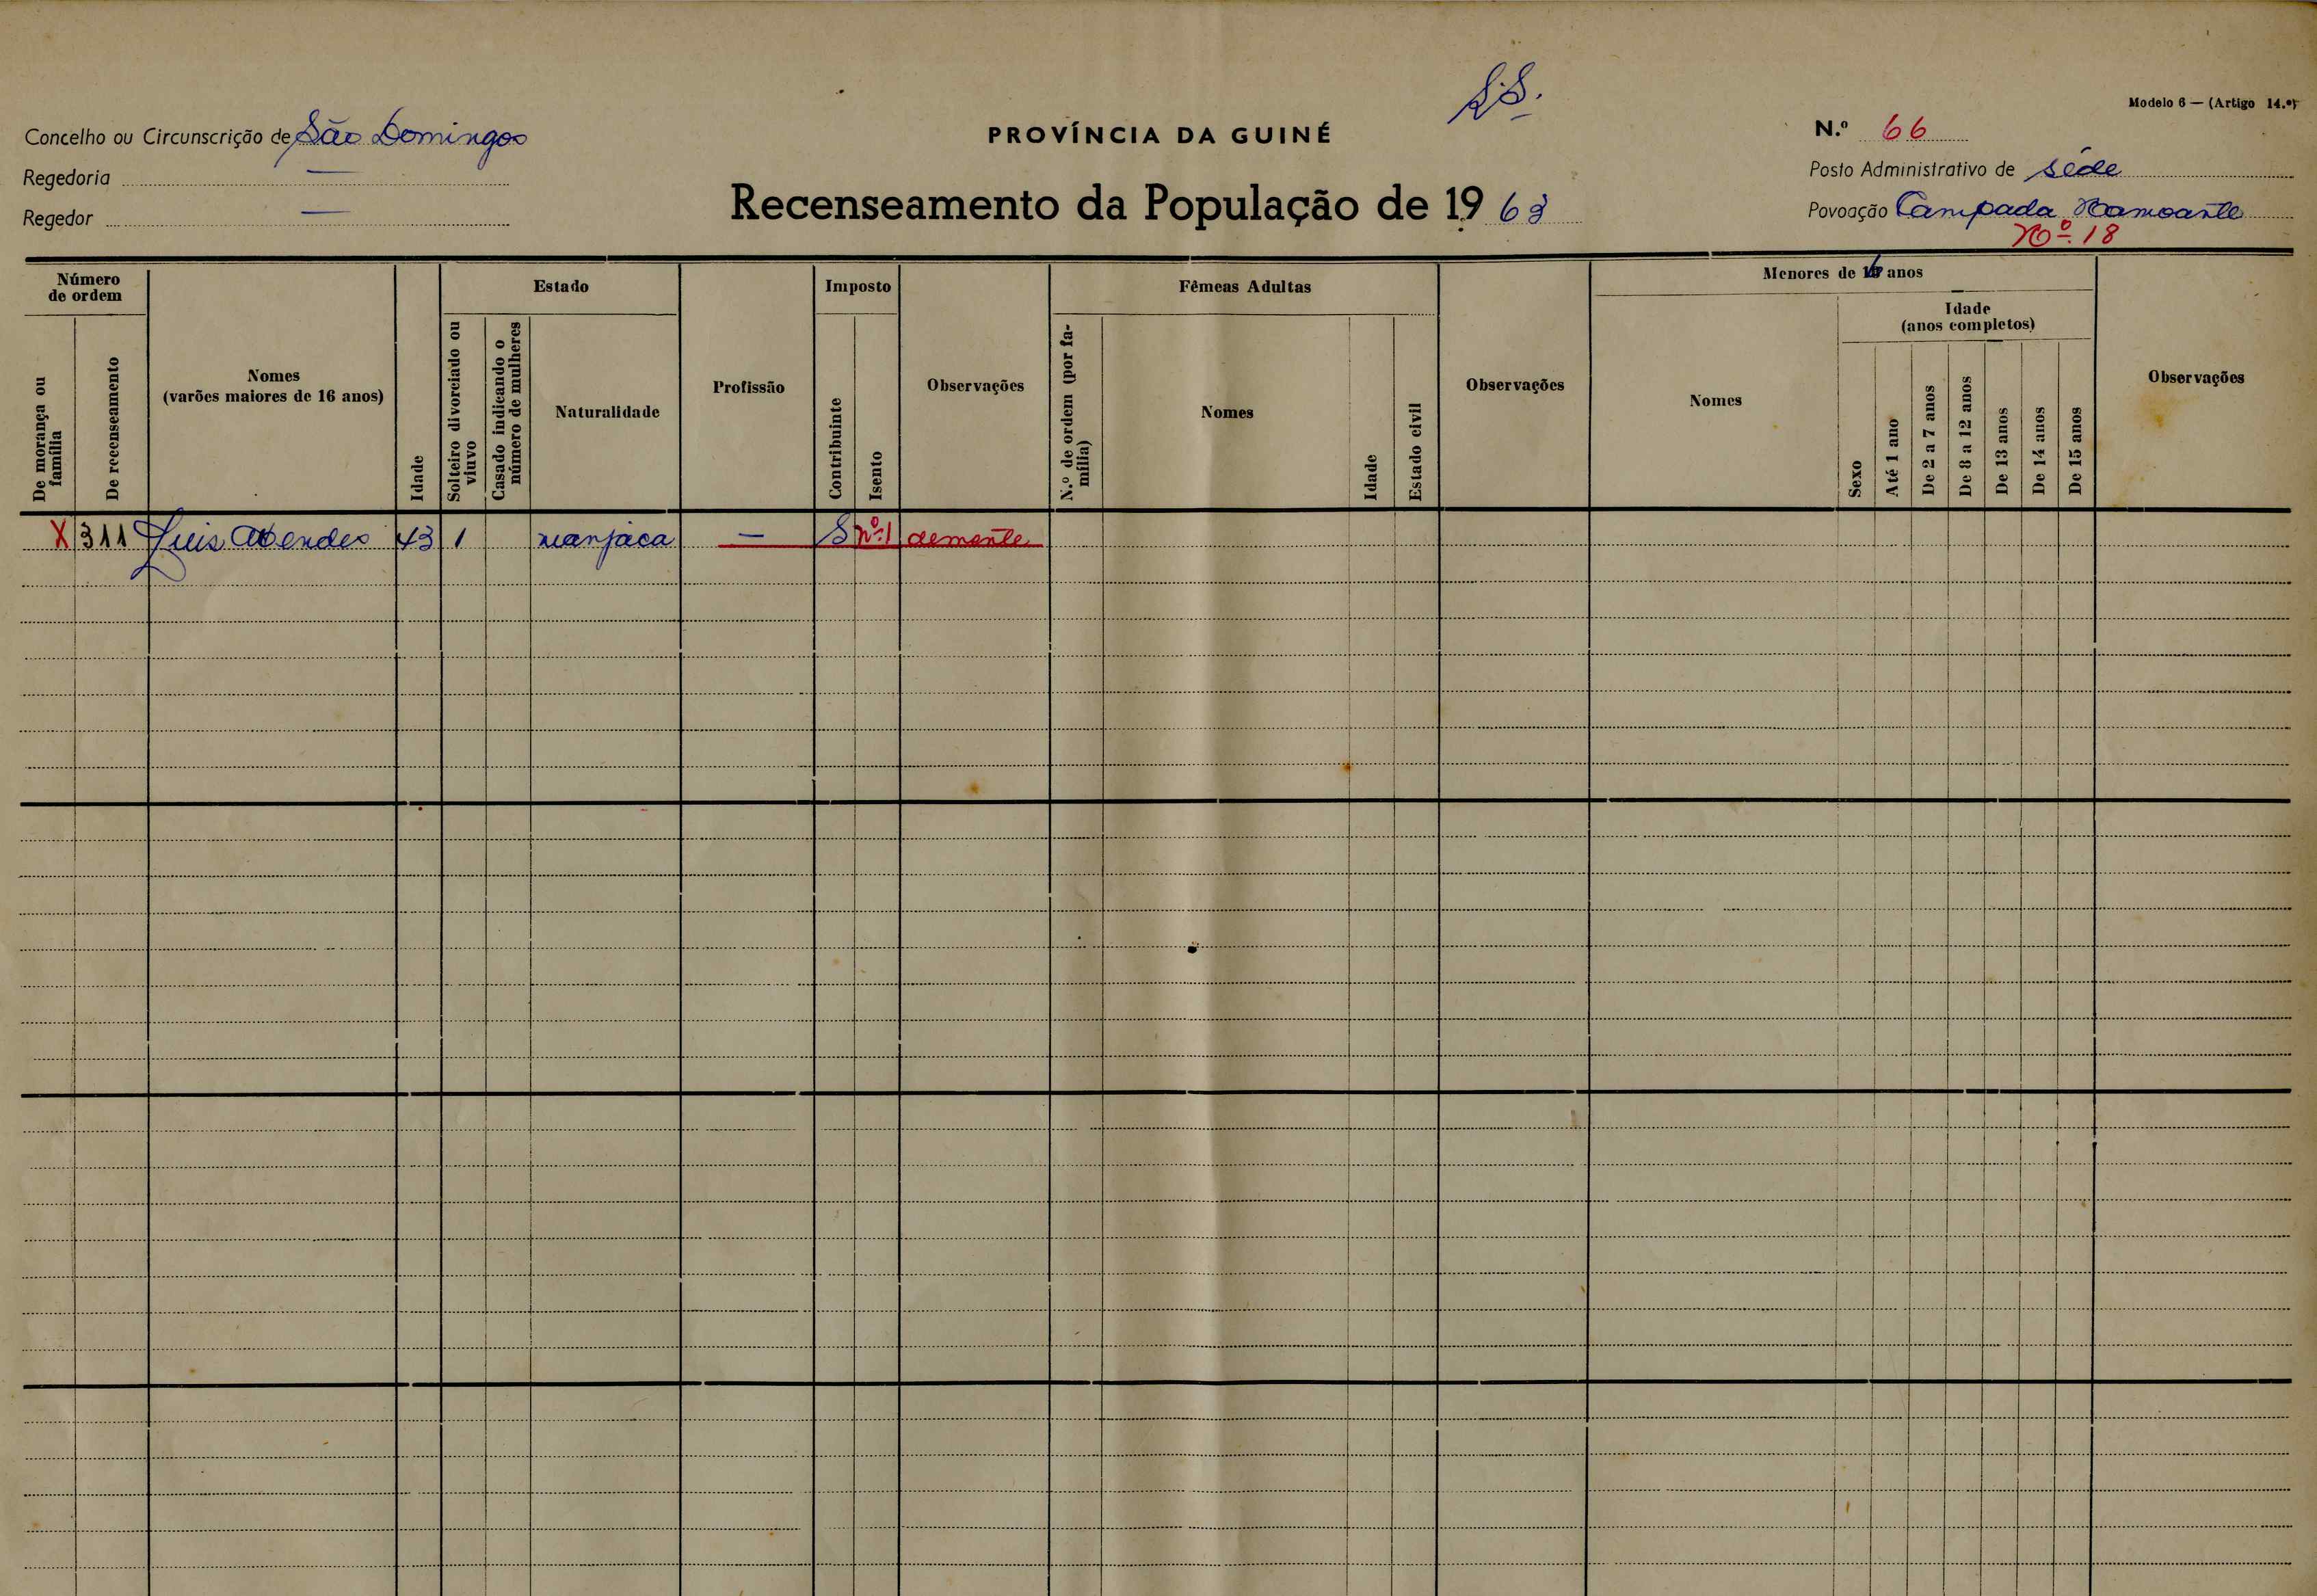 S.S.
Modelo 6 — (Artigo 14.º)
Concelho ou Circunscrição de São Domingos
Regedoria —
Regedor —
PROVÍNCIA DA GUINÉ
Recenseamento da População de 1963
N.º 66
Posto Administrativo de séde
Povoação Campada
Nº. 18
Número de ordem
De morança ou família
De recenseamento
Nomes
(varões maiores de 16 anos)
Idade
Estado
Solteiro divorciado ou viuvo
Casado indicando o número de mulheres
Naturalidade
Profissão
Imposto
Contribuinte
Isento
Observações
Fêmeas Adultas
N.º de ordem (por família)
Nomes
Idade
Estado civil
Observações
Menores de 16 anos
Nomes
Sexo
Idade
(anos completos)
Até 1 ano
De 2 a 7 anos
De 8 a 12 anos
De 13 anos
De 14 anos
De 15 anos
Observações
X 311 Luis Mendes 43 1 manjaca — S nº.1 demente